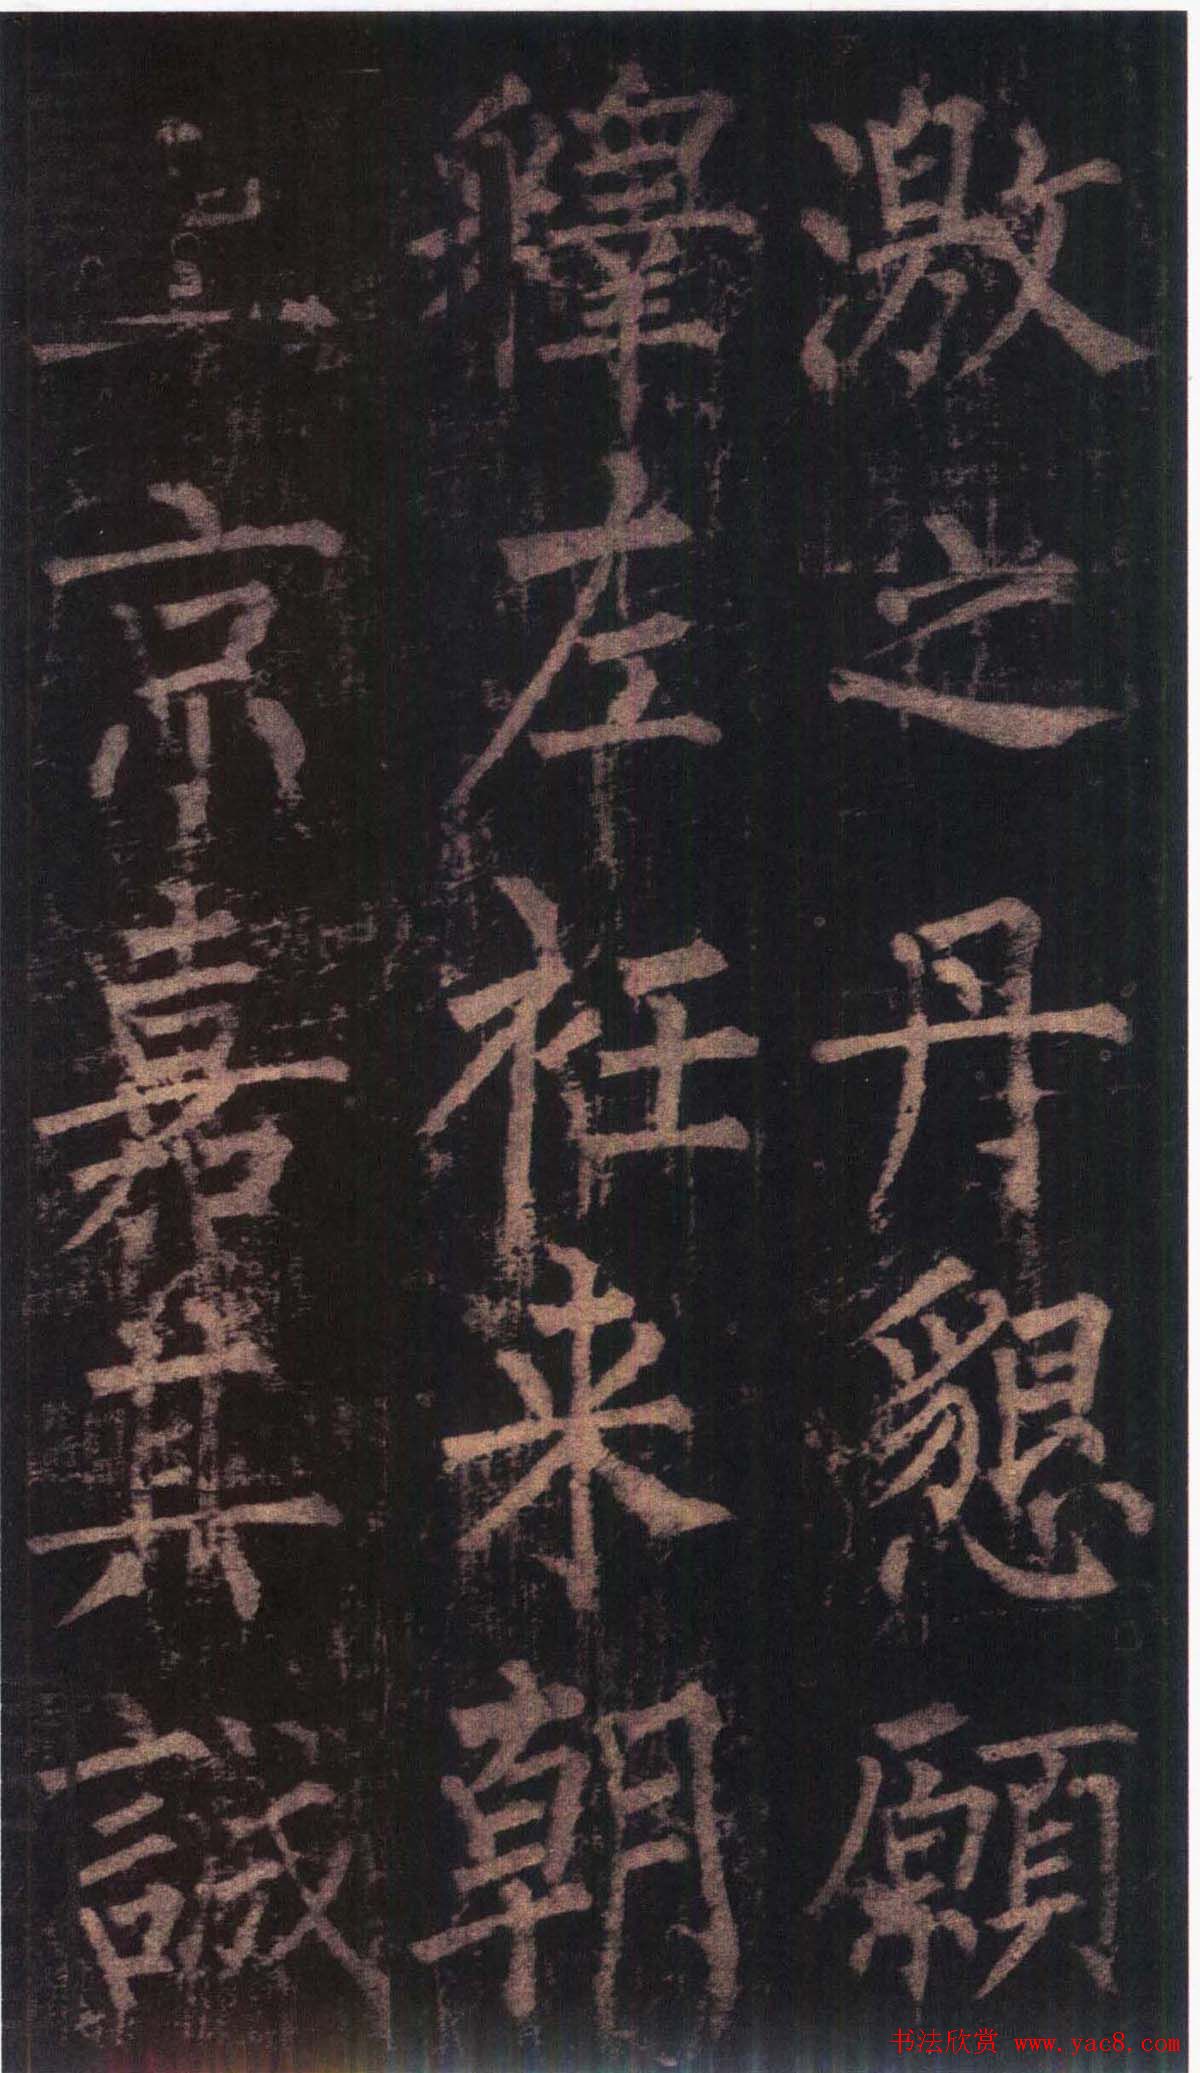 激之丹懇願
釋左衽来朝
京嘉其誠
书法欣赏 www.yac8.com